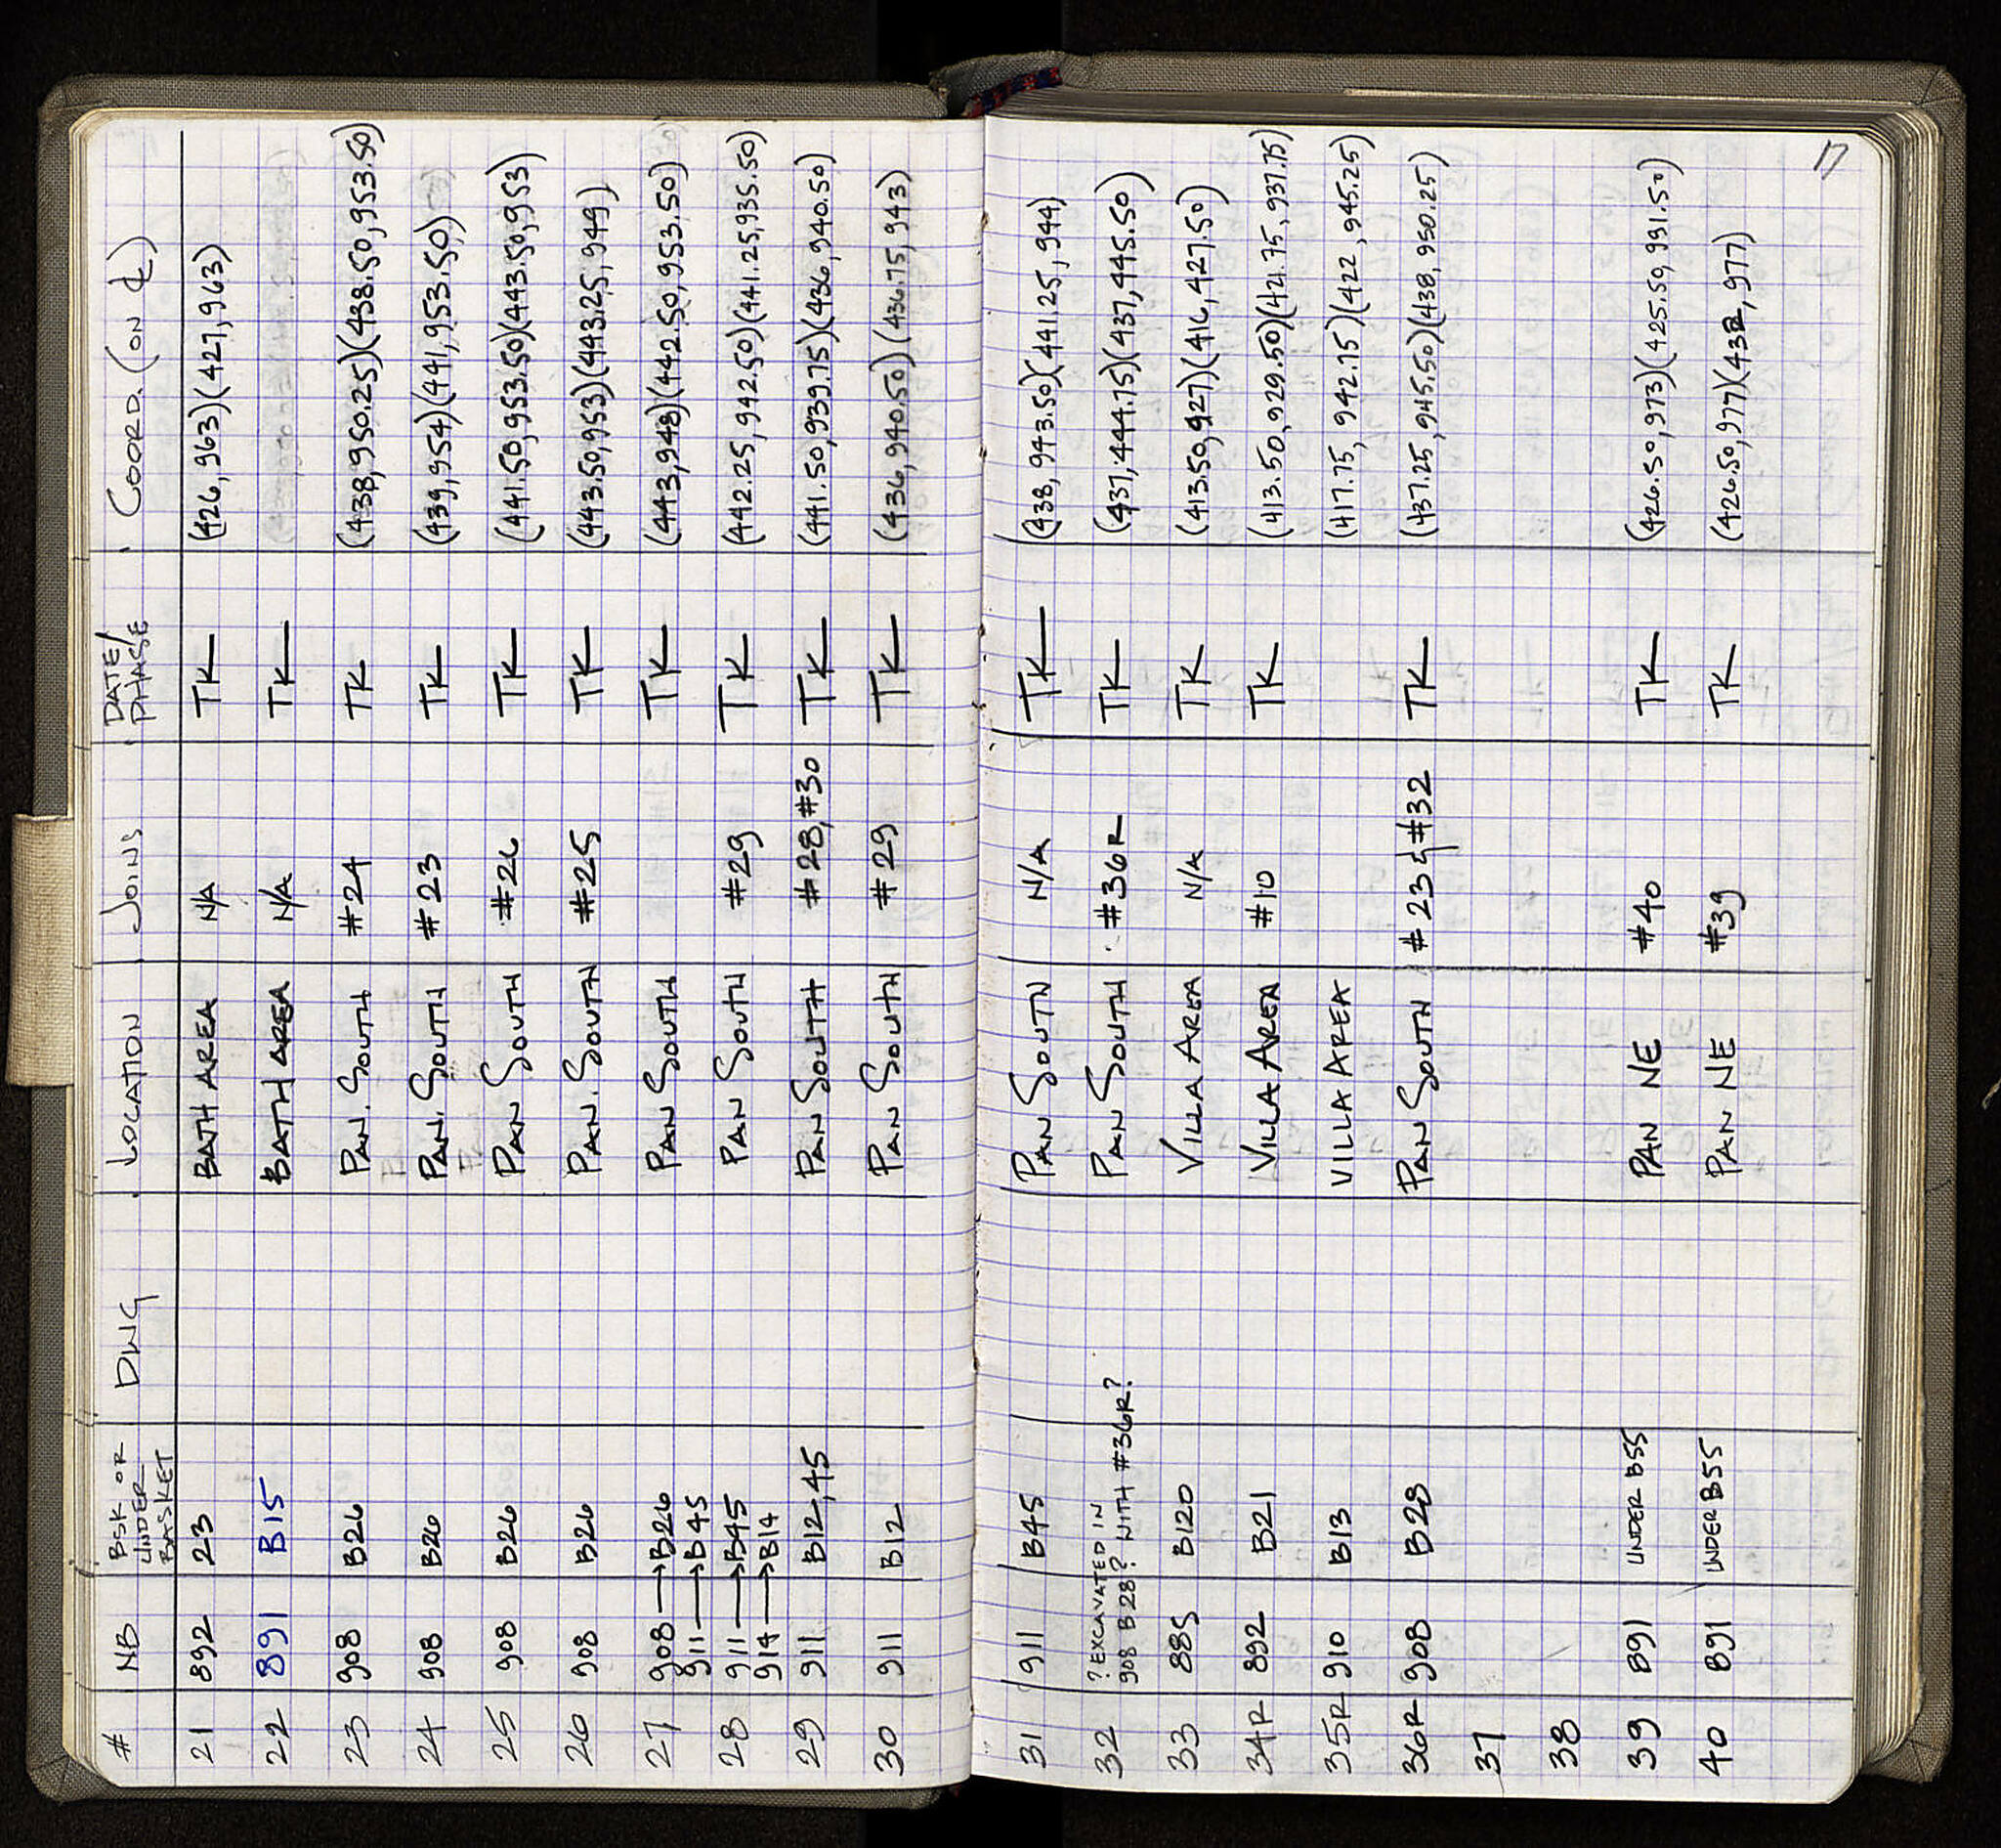 # NB BSK OR UNDER BASKET DWG LOCATION JOINS DATE/PHASE COORD. (ON ℄)
21 892 23 BATH AREA N/A TK (426,963)(427,963)
22 891 B15 BATH AREA N/A TK
23 908 B26 PAN. SOUTH #24 TK (438,950.25)(438.50,953.50)
24 908 B26 PAN. SOUTH #23 TK (439,954)(441,953.50)
25 908 B26 PAN SOUTH #26 TK (441.50,953.50)(443.50,953)
26 908 B26 PAN. SOUTH #25 TK (443.50,953)(443.25,949)
27 908→B26 PAN SOUTH TK (443,948)(442.50,953.50)
911→B45
28 911→B45 PAN SOUTH #29 TK (442.25,942.50)(441.25,935.50)
914→B14
29 911 B12,45 PAN SOUTH #28,#30 TK (441.50,939.75)(436,940.50)
30 911 B12 PAN SOUTH #29 TK (436,940.50)(436.75,943)
17
31 911 B45 PAN SOUTH N/A TK (438,943.50)(441.25,944)
32 ? EXCAVATED IN PAN SOUTH #36R TK (437,444.75)(437,445.50)
908 B28? WITH #36R?
33 885 B120 VILLA AREA N/A TK (413.50,927)(416,427.50)
34R 892 B21 VILLA AREA #10 TK (413.50,929.50)(421.75,937.75)
35R 910 B13 VILLA AREA (417.75,942.75)(422,945.25)
36R 908 B28 PAN SOUTH #23 & #32 TK (437.25,945.50)(438,950.25)
37
38
39 891 UNDER B55 PAN NE #40 TK (426.50,973)(425.50,991.50)
40 891 UNDER B55 PAN NE #39 TK (426.50,977)(432,977)